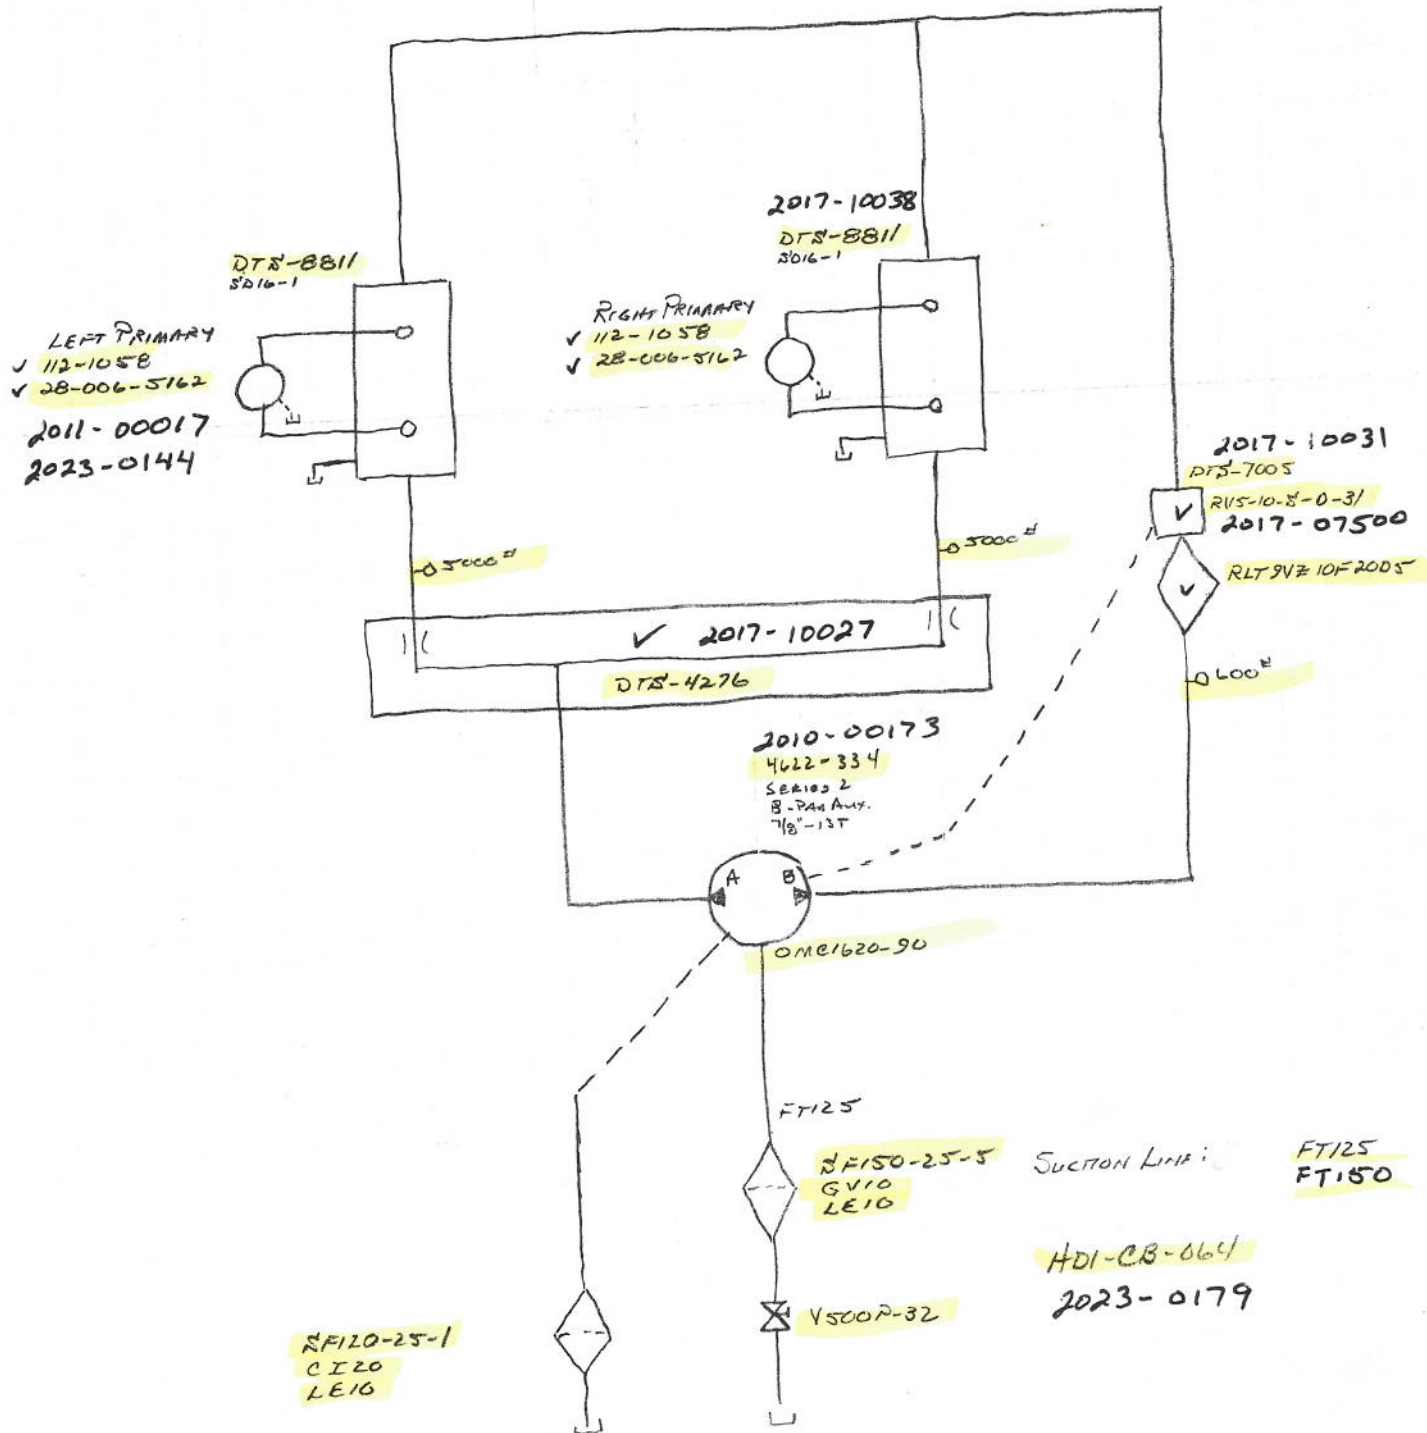 2017-10038
DTS-8811
SD16-1
DTS-8811
SD16-1
LEFT PRIMARY
✓ 112-1058
✓ 28-006-5162
2011-00017
2023-0144
RIGHT PRIMARY
✓ 112-1058
✓ 28-006-5162
2017-10031
DTS-7005
RV5-10-S-0-31
✓ 2017-07500
✓ RLT9VZ10F20D5
5000#
5000#
600#
✓ 2017-10027
DTS-4276
2010-00173
4622-334
SERIES 2
B-PAD AUX.
7/8"-13T
A B
OMC1620-90
FT125
SF150-25-5
GV10
LE10
SUCTION LINE: FT125
FT150
HD1-CB-064
2023-0179
V500P-32
SF120-25-1
CI20
LE10